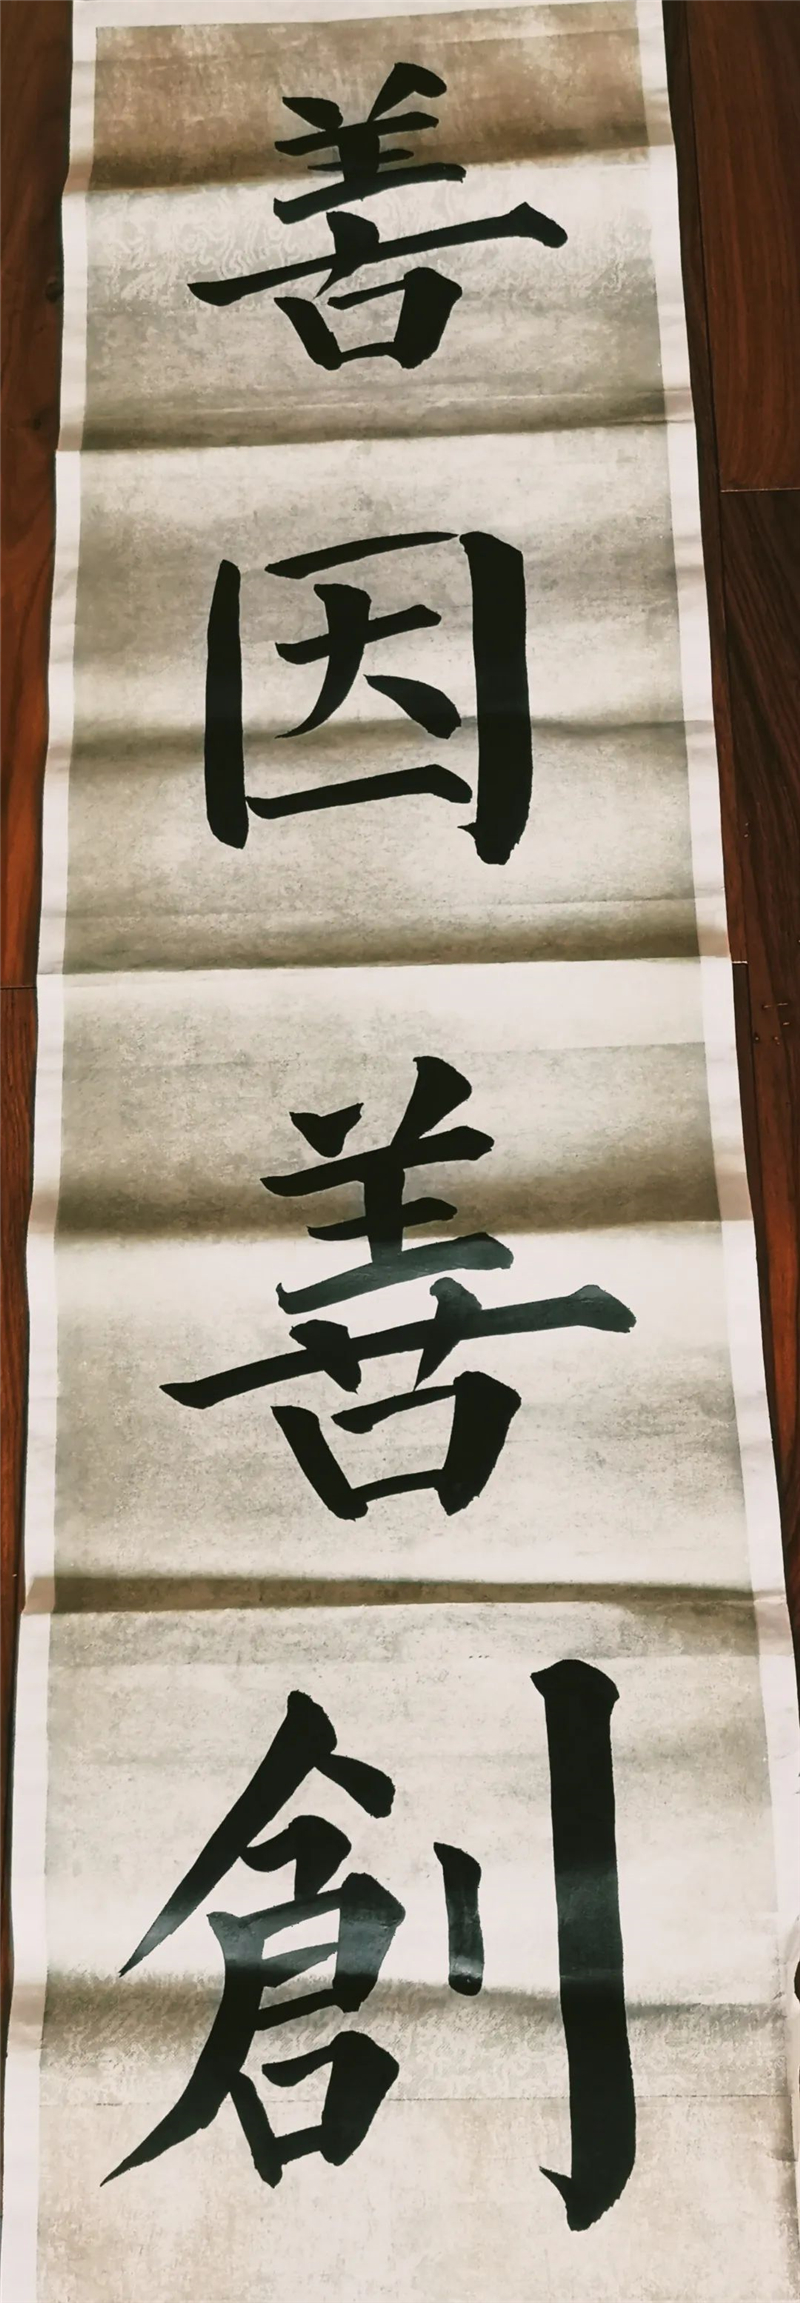 善因善創